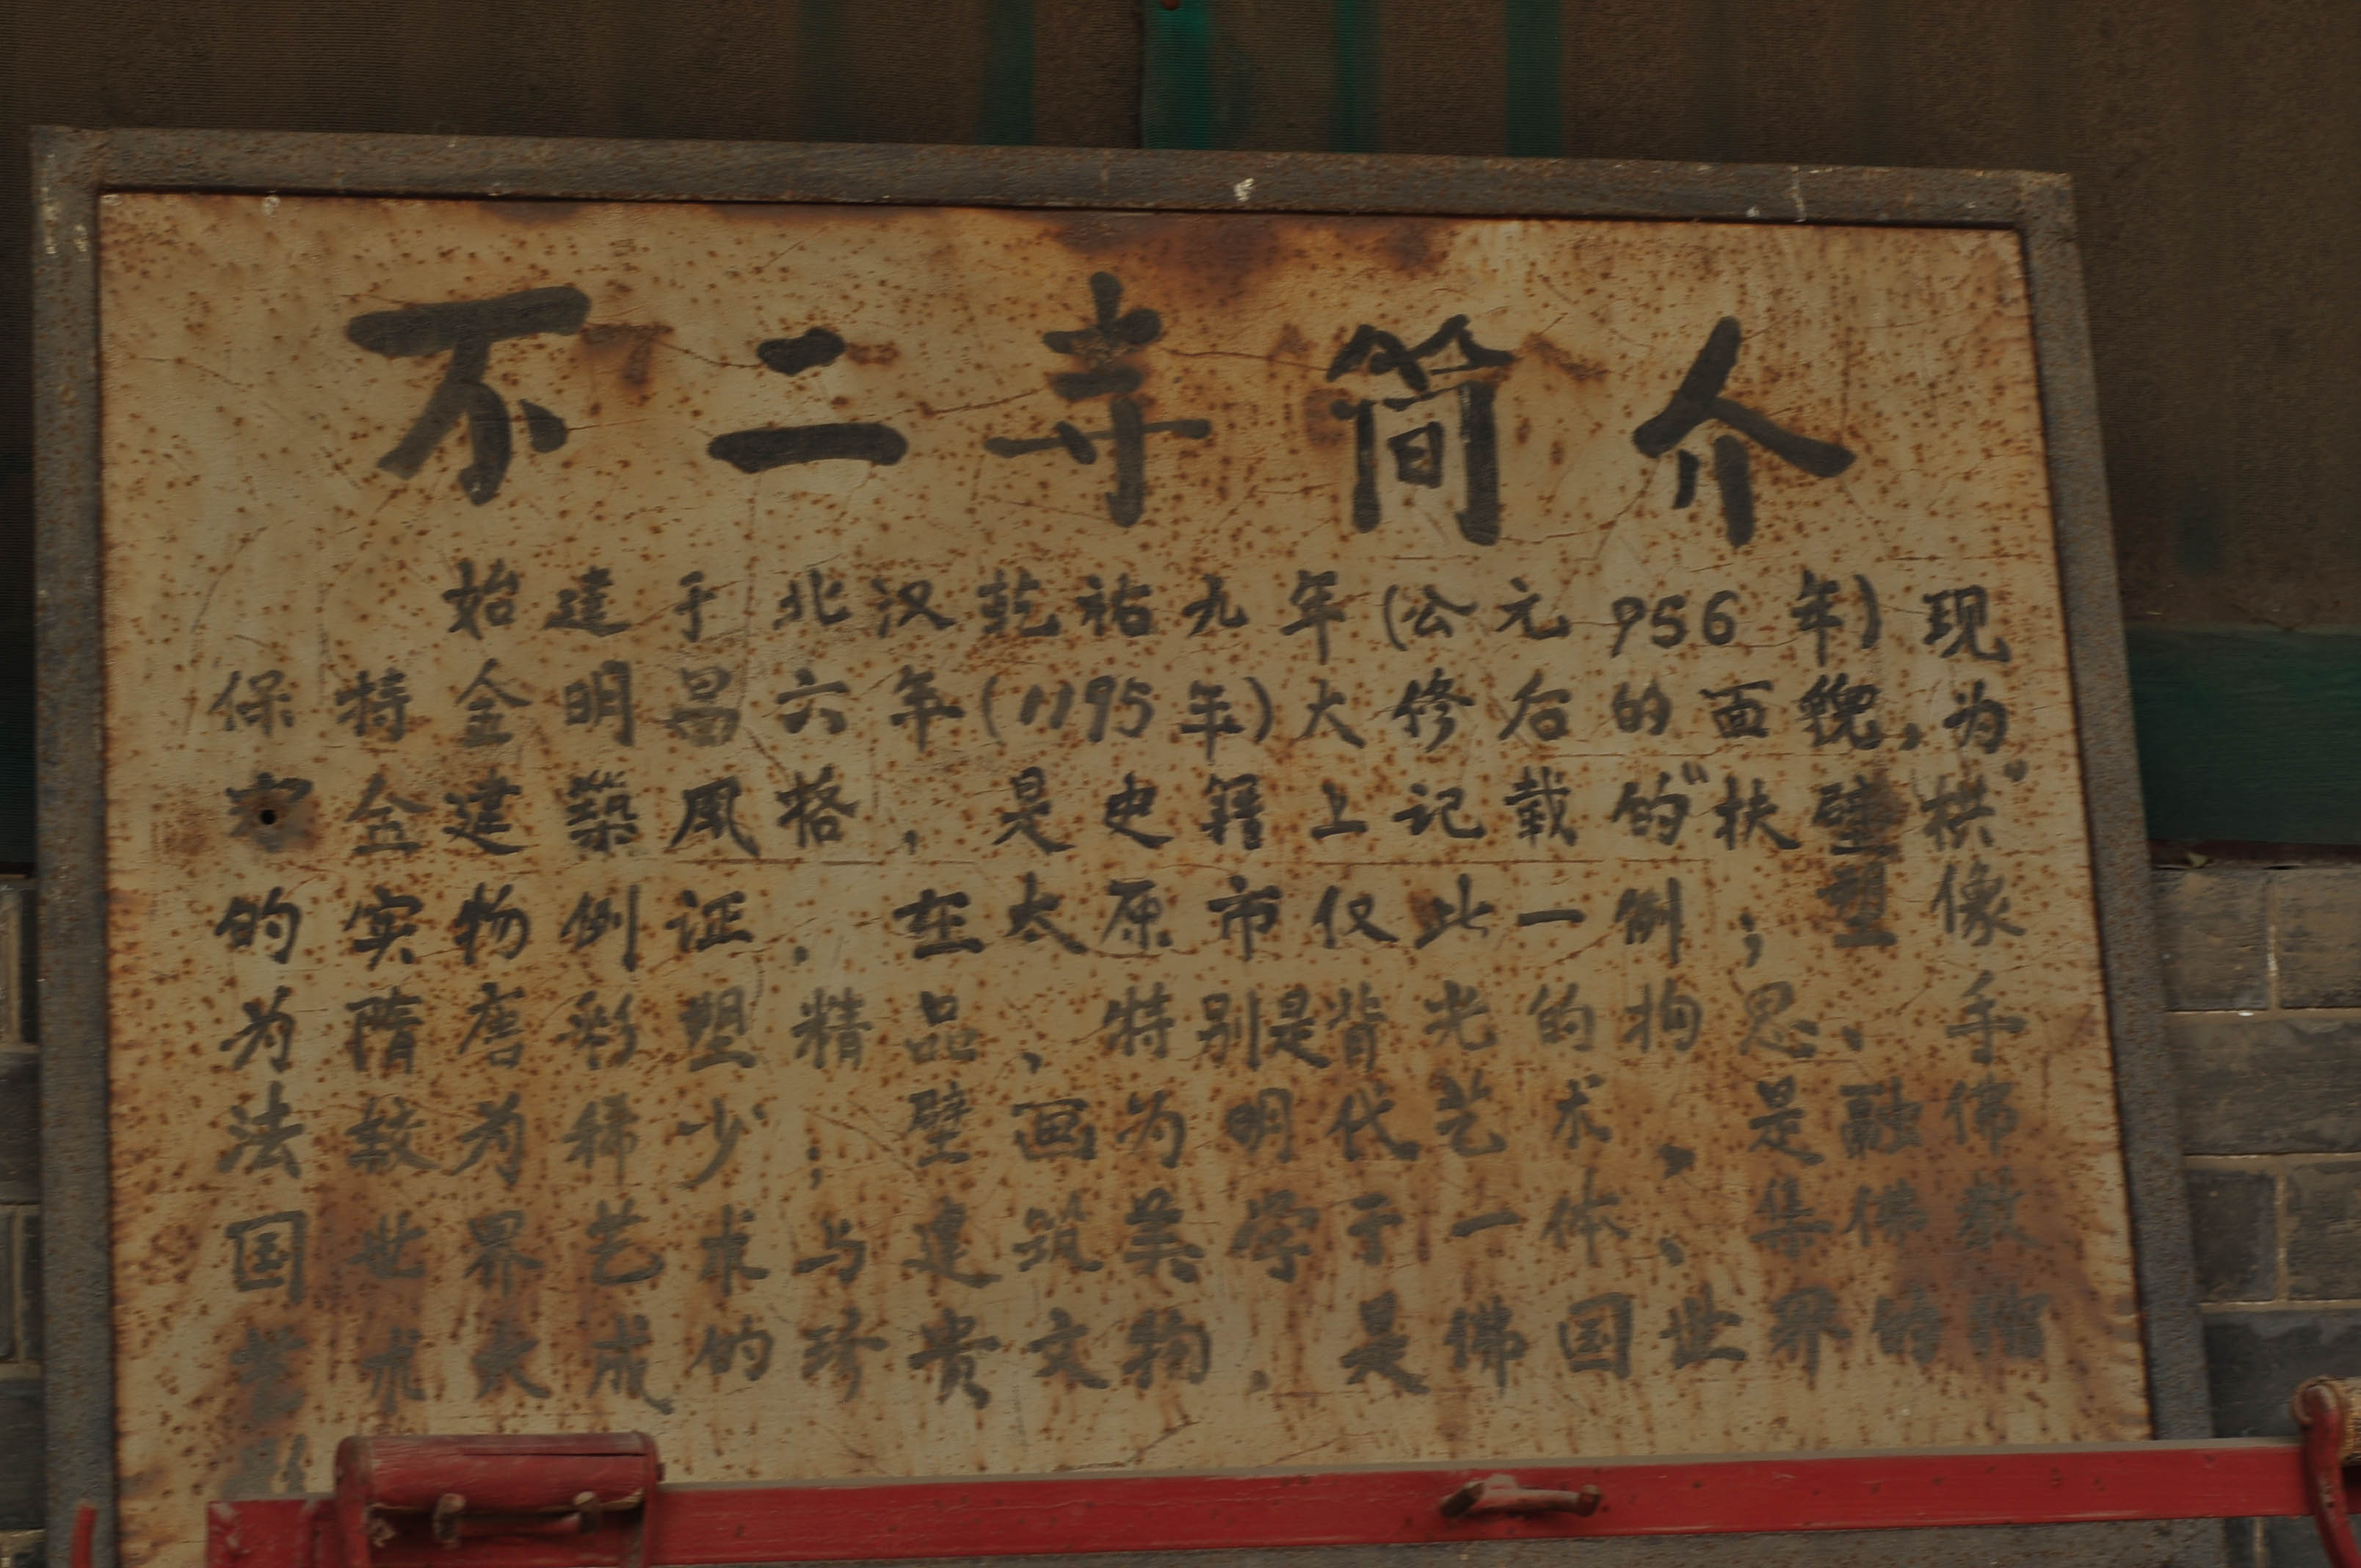 不二寺简介
始建于北汉乾祐九年(公元956年)现
保持金明昌六年(1195年)大修后的面貌,为
宋金建築风格,是史籍上记载的"扶壁栱"
的实物例证.在太原市仅此一例;塑像
为隋唐彩塑精品、特别是背光的构思、手
法较为稀少;壁画为明代艺术、是融佛
国世界艺术与建筑美学于一体、集佛教
艺术大成的珍贵文物.是佛国世界的